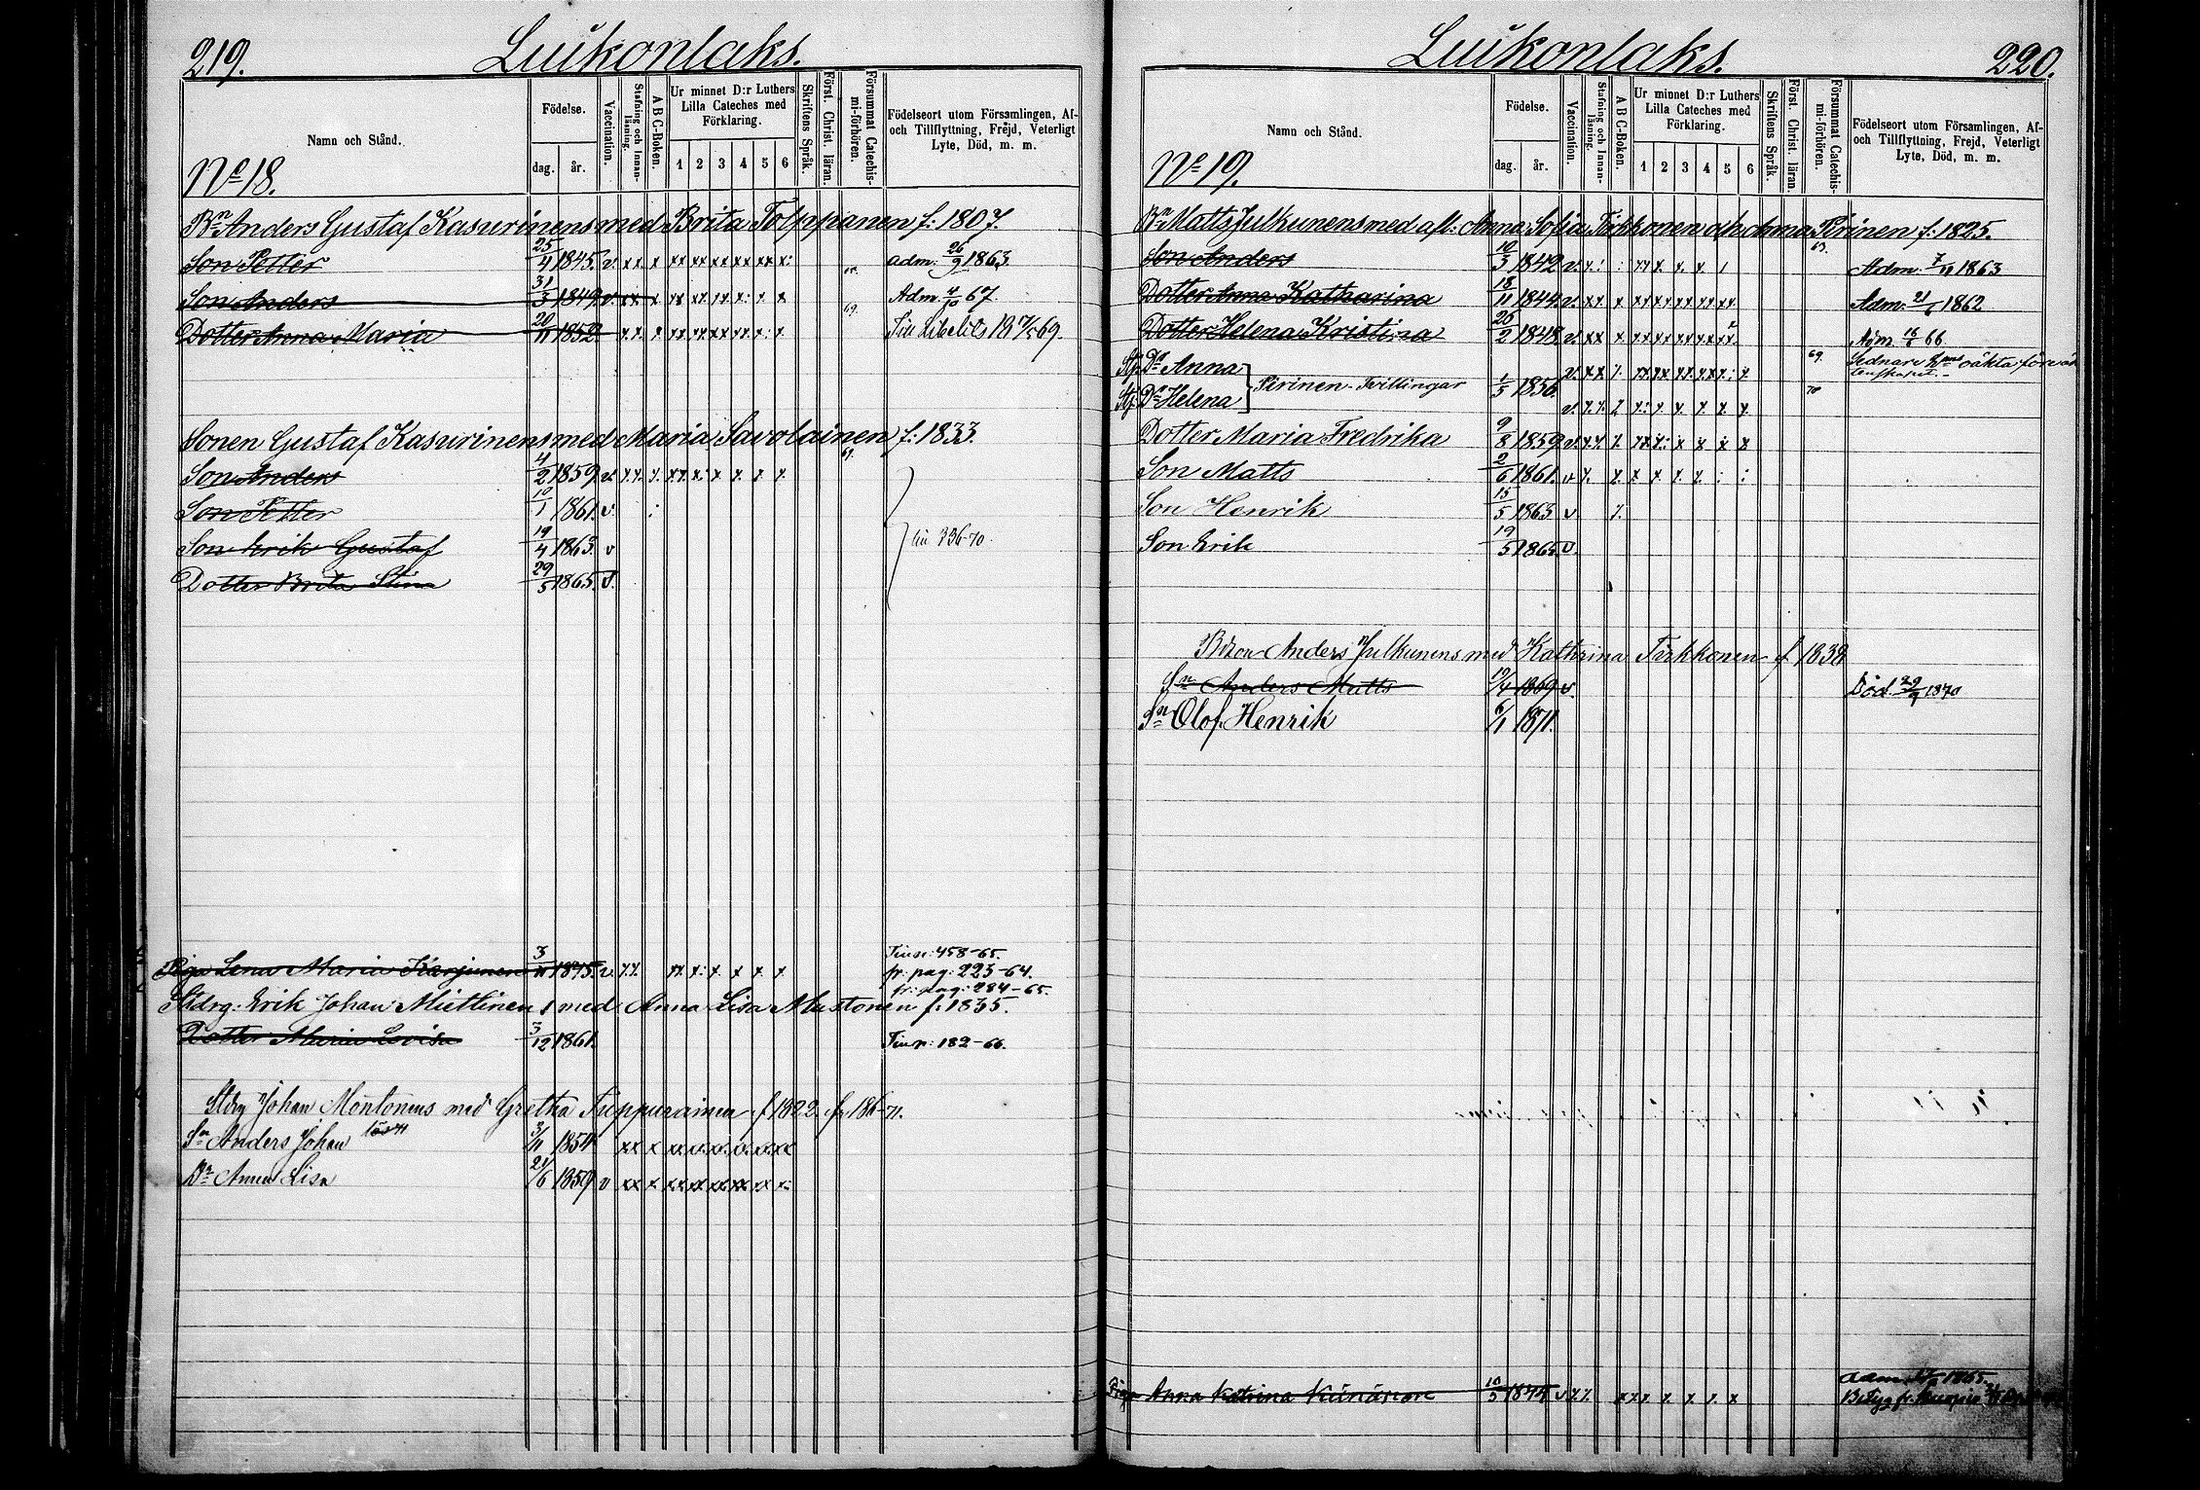 219. Luikonlaks.
Namn och Stånd.
Födelse.
dag. år.
Vaccination.
Stafning och Innan-läsning.
A B C-Boken.
Ur minnet D:r Luthers
Lilla Cateches med
Förklaring.
1 2 3 4 5 6
Skriftens Språk.
Först. Christ. läran.
Försummat Catechis-mi-förhören.
Födelseort utom Församlingen, Af-
och Tillflyttning, Frejd, Veterligt
Lyte, Död, m. m.
No 18.
Bn Anders Gustaf Kasurinens med Brita Tolppanen f: 1807.
Son Petter 25/4 1845. v. xx x xx xx xx xx xx x: adm: 26/9 1863.
Son Anders 31/3 1849 v. xx x xx xx xx x: x x Adm. 4/10 67.
69.
Dotter Anna Maria 20/11 1852. xx x xx xx xx xx x: x Libelits 69.
Sonen Gustaf Kasurinens med Maria Savolainen f: 1833.
Son Anders 4/2 1859 v. xx. x. xx x. x x. x x
Son Petter 10/1 1861. v. :
Son Erik Gustaf 19/4 1863. v 336-70.
Dotter Brita Stina 29/5 1865. v.
458-65.
Piga Lena Maria Karjunen 3/11 1845. v. xx. xx. x: x x x x fr. pag: 223-64.
fr: pag: 284-65.
Stdrg. Erik Johan Miettinen s med Anna Lisa Mustonen f: 1835.
Dotter Maria Lovisa 3/12 1861. 182-66.
Stdrg Johan Montonens med Gretha Tuppurainen f 1822. fr 186-71.
Sn Anders Johan 3/11 1854 xx x xx x. xx. x. x. xx
Dr Anna Lisa 21/6 1859 v xx x xx x. xx xx xx x:
Luikonlaks. 220.
Namn och Stånd.
Födelse.
dag. år.
Vaccination.
Stafning och Innan-läsning.
A B C-Boken.
Ur minnet D:r Luthers
Lilla Cateches med
Förklaring.
1 2 3 4 5 6
Skriftens Språk.
Först. Christ. läran.
Försummat Catechis-mi-förhören.
Födelseort utom Församlingen, Af-
och Tillflyttning, Frejd, Veterligt
Lyte, Död, m. m.
No 19.
Bn Matts Julkunens med afl: Anna Sofia Tirkkonen och Anna Pirinen f: 1825.
63.
Son Anders 10/3 1842 v. x. : xx x. x. x. Adm: 7/11 1863
Dotter Anna Katharina 18/11 1844 v. xx x xx xx xx xx xx Adm: 1862
Dotter Helena Kristina 25/2 1848 v. xx x xx xx xx xx xx Adm. 16/6 66.
Dr Anna v. xx x. xx xx xx. xx x: x 69.
Pirinen Tvillingar 1/5 1856.
Dr Helena v. x. x. x x: x x. x x x. 70
Dotter Maria Fredrika 9/8 1859 v. x. x. x. xx x: x x x x
Son Matts 2/6 1861. v x. x. x x x. x. : :
Son Henrik 15/5 1863 v x.
Son Erik 19/5 1865. v.
Anders Julkunens med Kathrina Tirkkonen f 1838
Sn Anders Matts 1869 v. Död. 29/9 1870
Sn Olof Henrik 6/1 1871.
adm. 1865.
Piga Anna Katrina 10/5 1844 v x x. xx x. x. x x. x Betyg fr. Kuopio